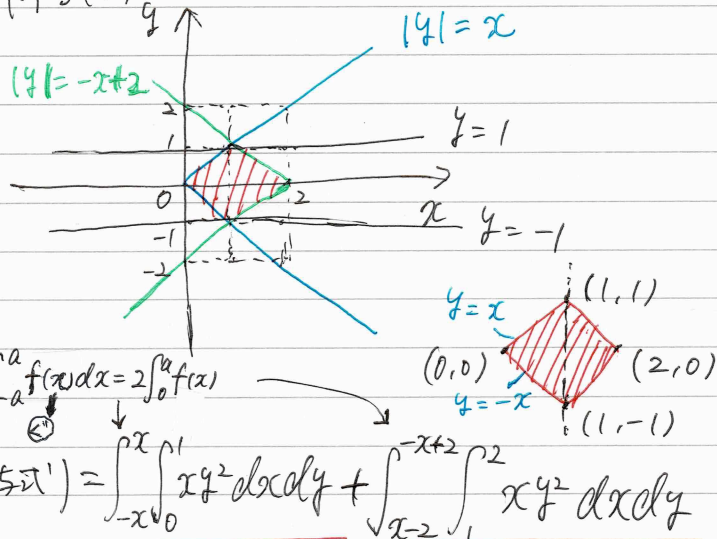 y
|y| = x
|y| = -x+2
2
1
y = 1
0
2
x
-1
y = -1
-2
(1,1)
y = x
(0,0)
(2,0)
y = -x
(1,-1)
∫_{-a}^{a} f(x)dx = 2∫_{0}^{a} f(x)
) = ∫_{-x}^{x} ∫_{0}^{1} xy² dxdy + ∫_{x-2}^{-x+2} ∫_{1}^{2} xy² dxdy